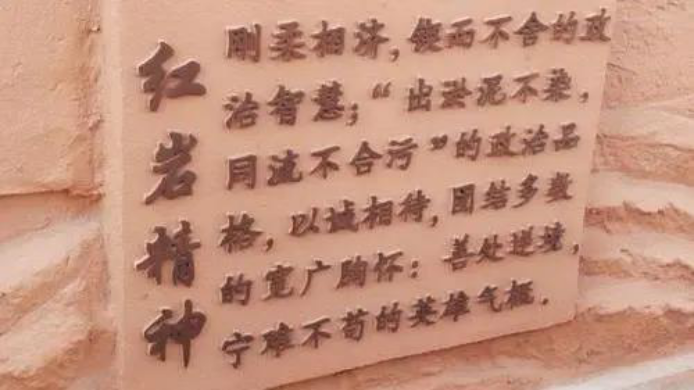 红岩精神
刚柔相济，锲而不舍的政
治智慧；“出淤泥不染，
同流不合污”的政治品
格，以诚相待，团结多数
的宽广胸怀：善处逆境，
宁难不苟的英雄气概．